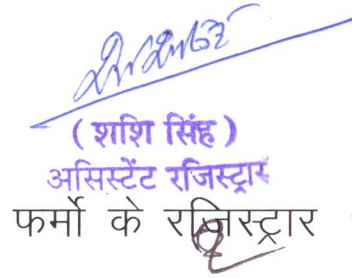 ( शशि सिंह )
असिस्टेंट रजिस्ट्रार
फर्मो के रजिस्ट्रार